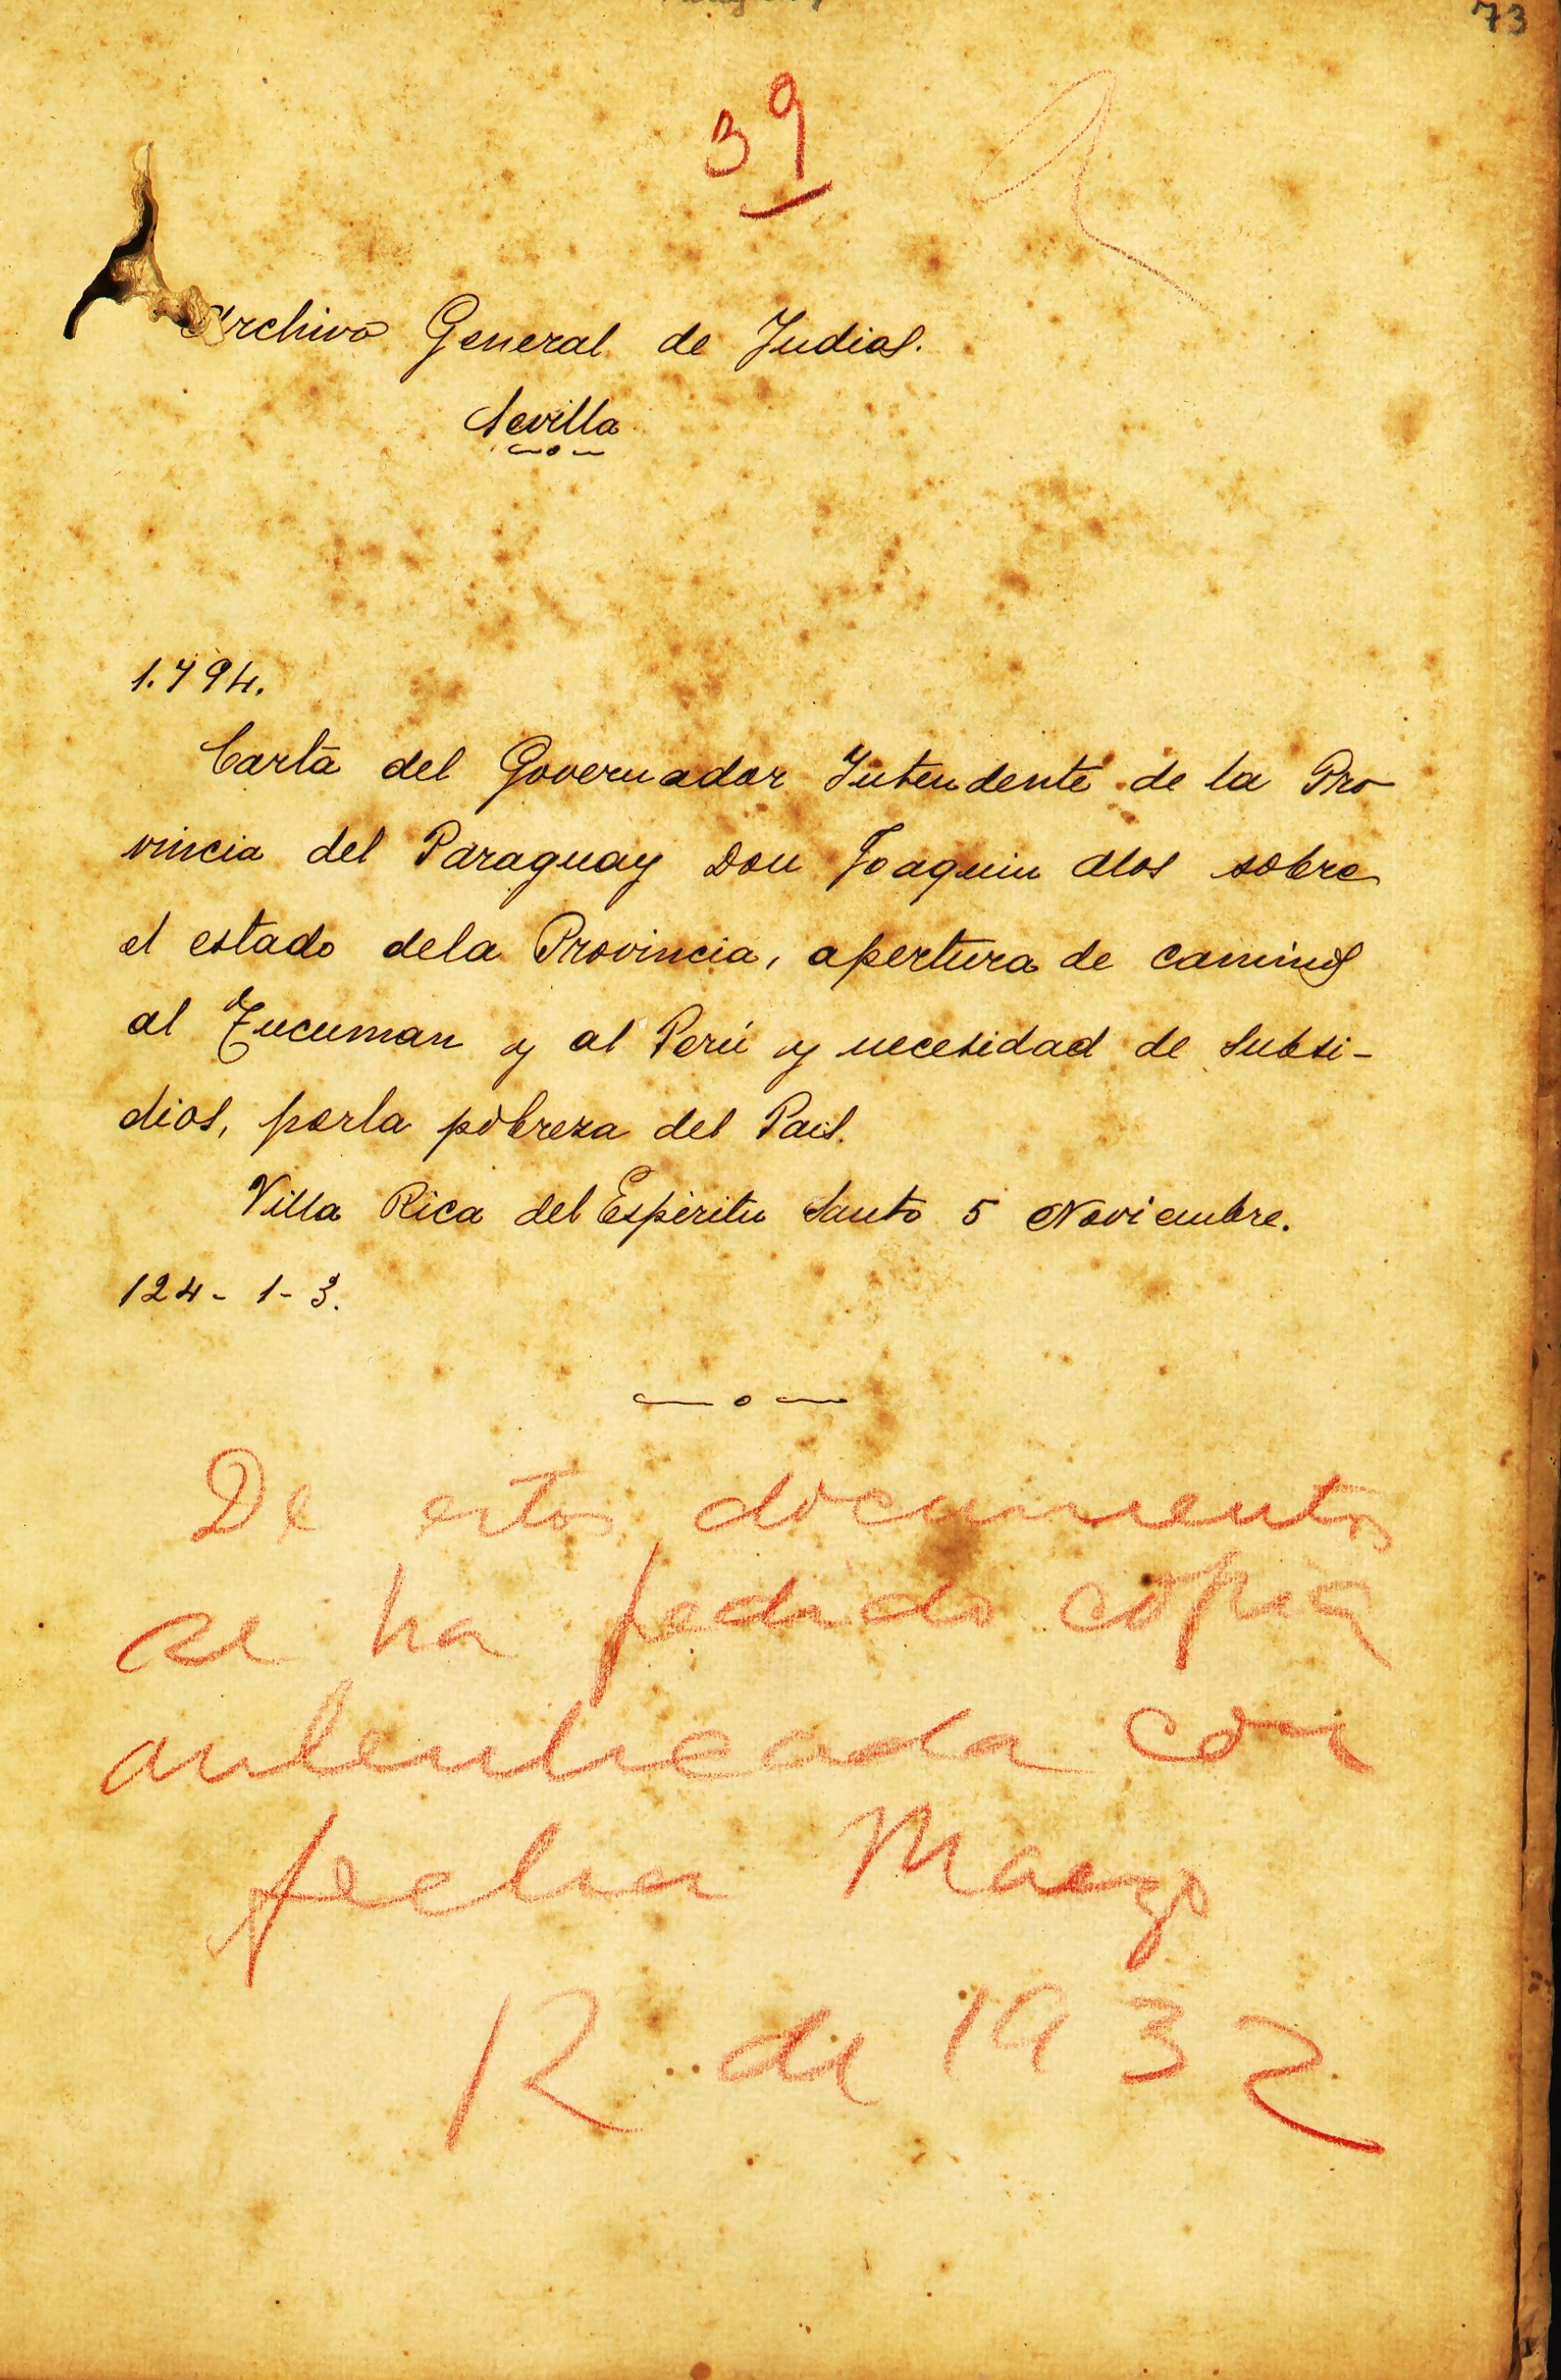 73
39
Archivo General de Indias.
Sevilla
1.794.
Carta del Governador Intendente de la Pro
vincia del Paraguay Don Joaquin Alos sobre
el estado dela Provincia, apertura de caminos
al Tucuman y al Perú y necesidad de subsi-
dios, porla pobreza del Pais.
Villa Rica del Espiritu Santo 5 Noviembre.
124-1-3.
De estos documentos
se ha pedido copia
autenticada con
fecha Marzo
12 de 1932